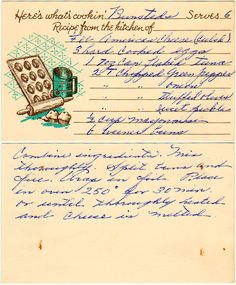 Here's what's cookin' Bunsteds Serves 6
Recipe from the kitchen of
American Cheese (Cubed)
3 hard cooked eggs
1 7oz can flaked Tuna
2 T Chopped Green Pepper
" " onion
" " stuffed olives
" " sweet pickles
1/2 cup Mayonnaise
6 buns
Combine ingredients. Mix
thoroughly. Split buns and
fill. Wrap in foil. Place
in oven 250° for 30 min.
or until thoroughly heated
and cheese is melted.